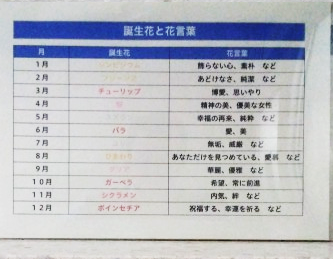 誕生花と花言葉
月 誕生花 花言葉
1月 飾らない心、素朴 など
2月 あどけなさ、純潔 など
3月 チューリップ 博愛、思いやり
4月 桜 精神の美、優美な女性
5月 幸福の再来、純粋 など
6月 バラ 愛、美
7月 無垢、威厳 など
8月 ひまわり あなただけを見つめている、愛慕 など
9月 華麗、優雅 など
10月 ガーベラ 希望、常に前進
11月 シクラメン 内気、絆 など
12月 ポインセチア 祝福する、幸運を祈る など